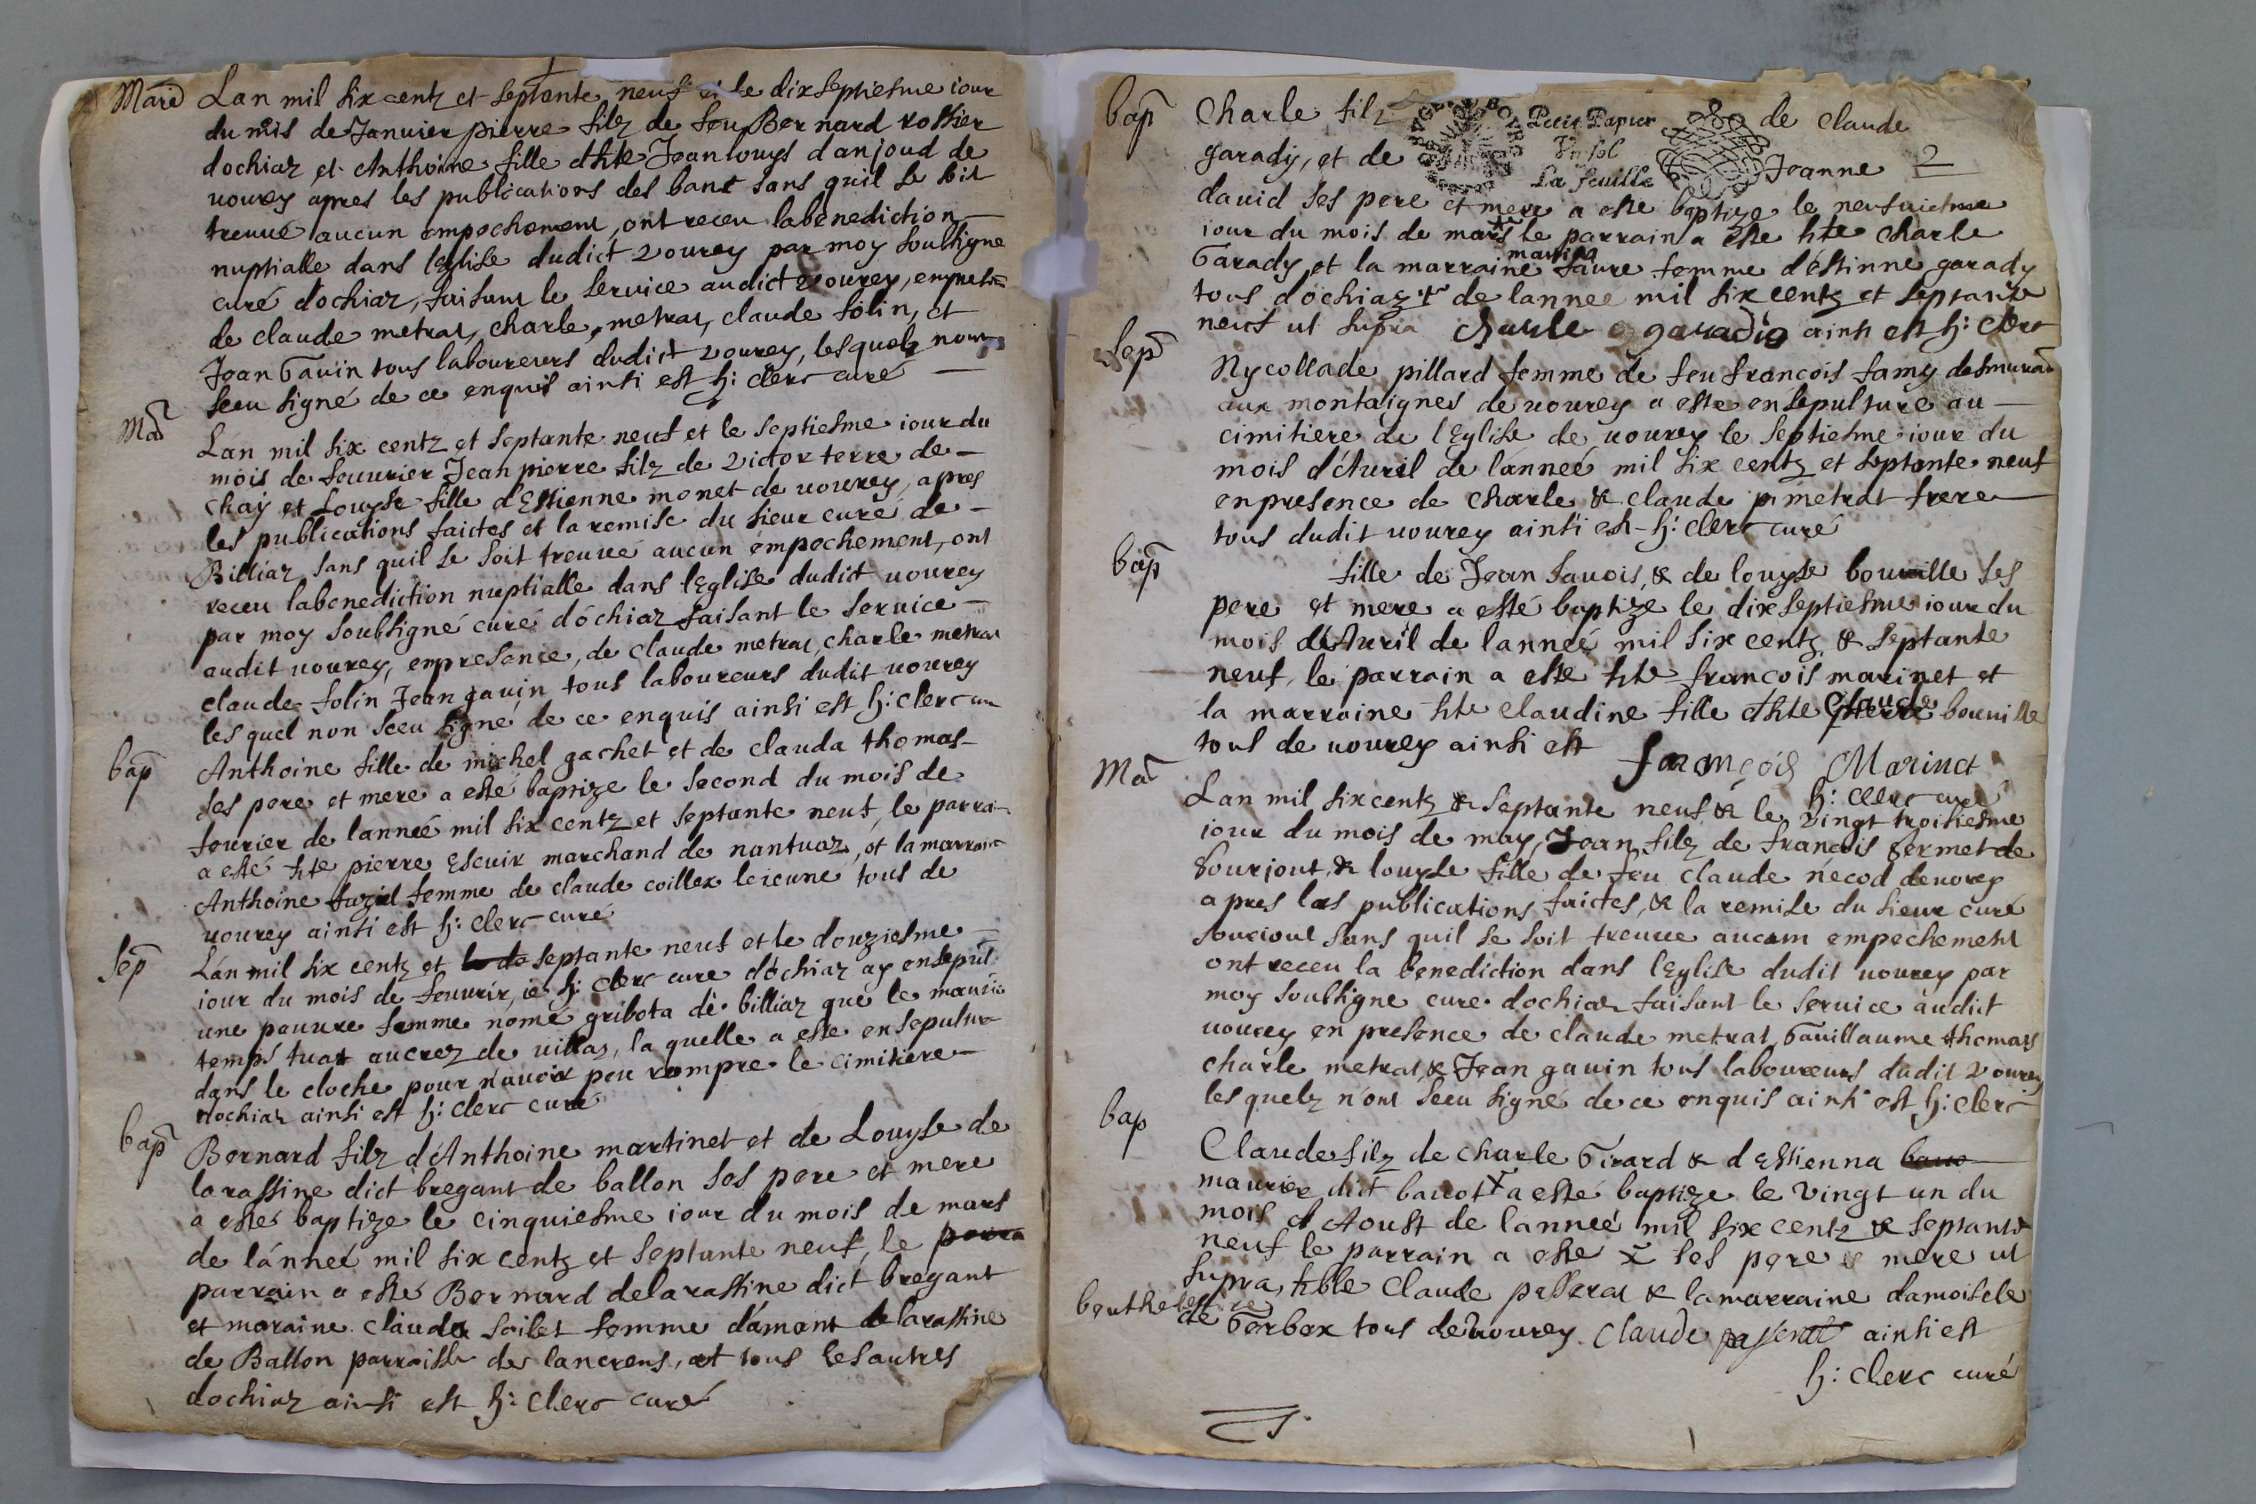 Mard Lan mil six centz et septante neuf et le dixseptiesme iour
du mois de Januier pierre filz de feu Bernard rossier
dochiaz et Anthoine fille dhte Jean louys danjoud de
uourey apres les publications des banc sans quil se soit
treuué aucun empechement, ont receu labenediction
nuptialle dans leglise dudict vourey par moy soubsigne
curé dochiaz, faisant le service audict vourey, enprese
de claude metrat, charle metrat, claude folin, et
Jean Gauin tous laboureurs dudict vourey, lesquelz nont
sceu signé de ce enquis ainsi est h: clerc curé
Mar
Lan mil six centz et septante neuf et le septiesme iour du
mois de feuurier Jean pierre filz de victor terre de
chay et Louyse fille dEstienne monet de uourey, apres
les publications faictes et la remise du sieur curé de
Billiaz sans quil se soit treuué aucun empechement, ont
receu labenediction nuptialle dans leglise dudict uourey
par moy soubsigné curé dóchiaz faisant le seruice
audit uourey, enpresence, de claude metrat, charle metrat
claude folin Jean gauin tous laboureurs dudit uourey
les quel non sceu signé de ce enquis ainsi est h: clerc cu
bap Anthoine fille de michel gachet et de clauda thomas
ses pere et mere a esté baptize le second du mois de
feurier de lanneé mil six centz et septante neuf, le parrai
a esté hte pierre escuir marchand de nantuaz, et la marraine
Anthoine femme de claude coillex leieune tous de
uourey ainsi est h: clerc curé
sep Lán mil six centz et le de septante neuf et le douziesme
iour du mois de feuurir, ie h: clerc cure dóchiaz ay ensepul
une pauure femme nomé gribota de billiaz que le mauuis
temps tuat aucrez de uillas, la quelle a esté ensepultur
dans le cloche pour nauoir peu rompre le cimitiere
dochiaz ainsi est h: clerc curé
bap Bernard filz dÁnthoine martinet et de Louyse de
larassine dict bregant de ballon ses pere et mere
a estés baptize le cinquiesme iour du mois de mars
de lánneé mil six centz et septante neuf, le parra
parrain a esté Bernard delarassine dict bregant
et maraine clauda soilet femme dámant de larassine
de Ballon parroisse de lancrens, et tous les autres
dochiaz ainsi est h: clerc curé
bap Charle filz de claude
Petit Papier
Vn sol
La feuille
garady, et de Jeanne 2
dauid ses pere et mere a esté baptize le neufuiesme
iour du mois de mars le parrain a esté hte charle
martina
Garady et la marraine faure femme déstinne garady
tous dóchiaz de lannee mil six centz et septante
neuf ut supra Charle garadig ainsi est h: clerc
sep Nycollade pillard femme de feu francois famy
aux montaignes de uourey a esté ensepulture au
cimitiere de lEglise de uourey le septiesme iour du
mois dÁuril de lánneé mil six centz et septante neuf
enpresence de charle & claude p: metrat frere
tous dudit uourey ainsi est h: clerc curé
bap
fille de Jean sauois, & de louyse bouuille ses
pere et mere a esté baptize le dixseptiesme iour du
mois dÁuril de lanneé mil six centz & septante
neuf, le parrain a esté hte françois marinet et
la marraine hte claudine fille dhte pierre claude bouuille
tous de uourey ainsi est françois Marinet
h: clerc curé
Mar Lan mil six centz & septante neuf & le vingt troisiesme
iour du mois de may, Jean filz de francois sermet de
sourjout, & louyse fille de feu claude nécod deuorey
apres las publications faictes, & la remise du sieur curé
sourioul sans quil se soit treuue aucun empechement
ont receu la benediction dans lEglise dudit uourey par
moy soubsigne cure dochiaz faisant le service audict
uourey en presence de claude metrat Gauillaume thomas
charle metrat & Jean gauin tous laboureurs dudit vourey
les quelz nont sceu signé de ce enquis ainsi est h: clerc
bap
Claude filz de charle Girard & dEstienna bauo
maurier dict bauot x a esté baptize le vingt un du
mois dAoust de lanneé mil six centz & septante
neuf le parrain a esté x ses pere & mere ut
supra, hble Claude passerat & lamarraine damoisele
de Gerbex tous deuourey. Claude passerat ainsi est
h: clerc curé